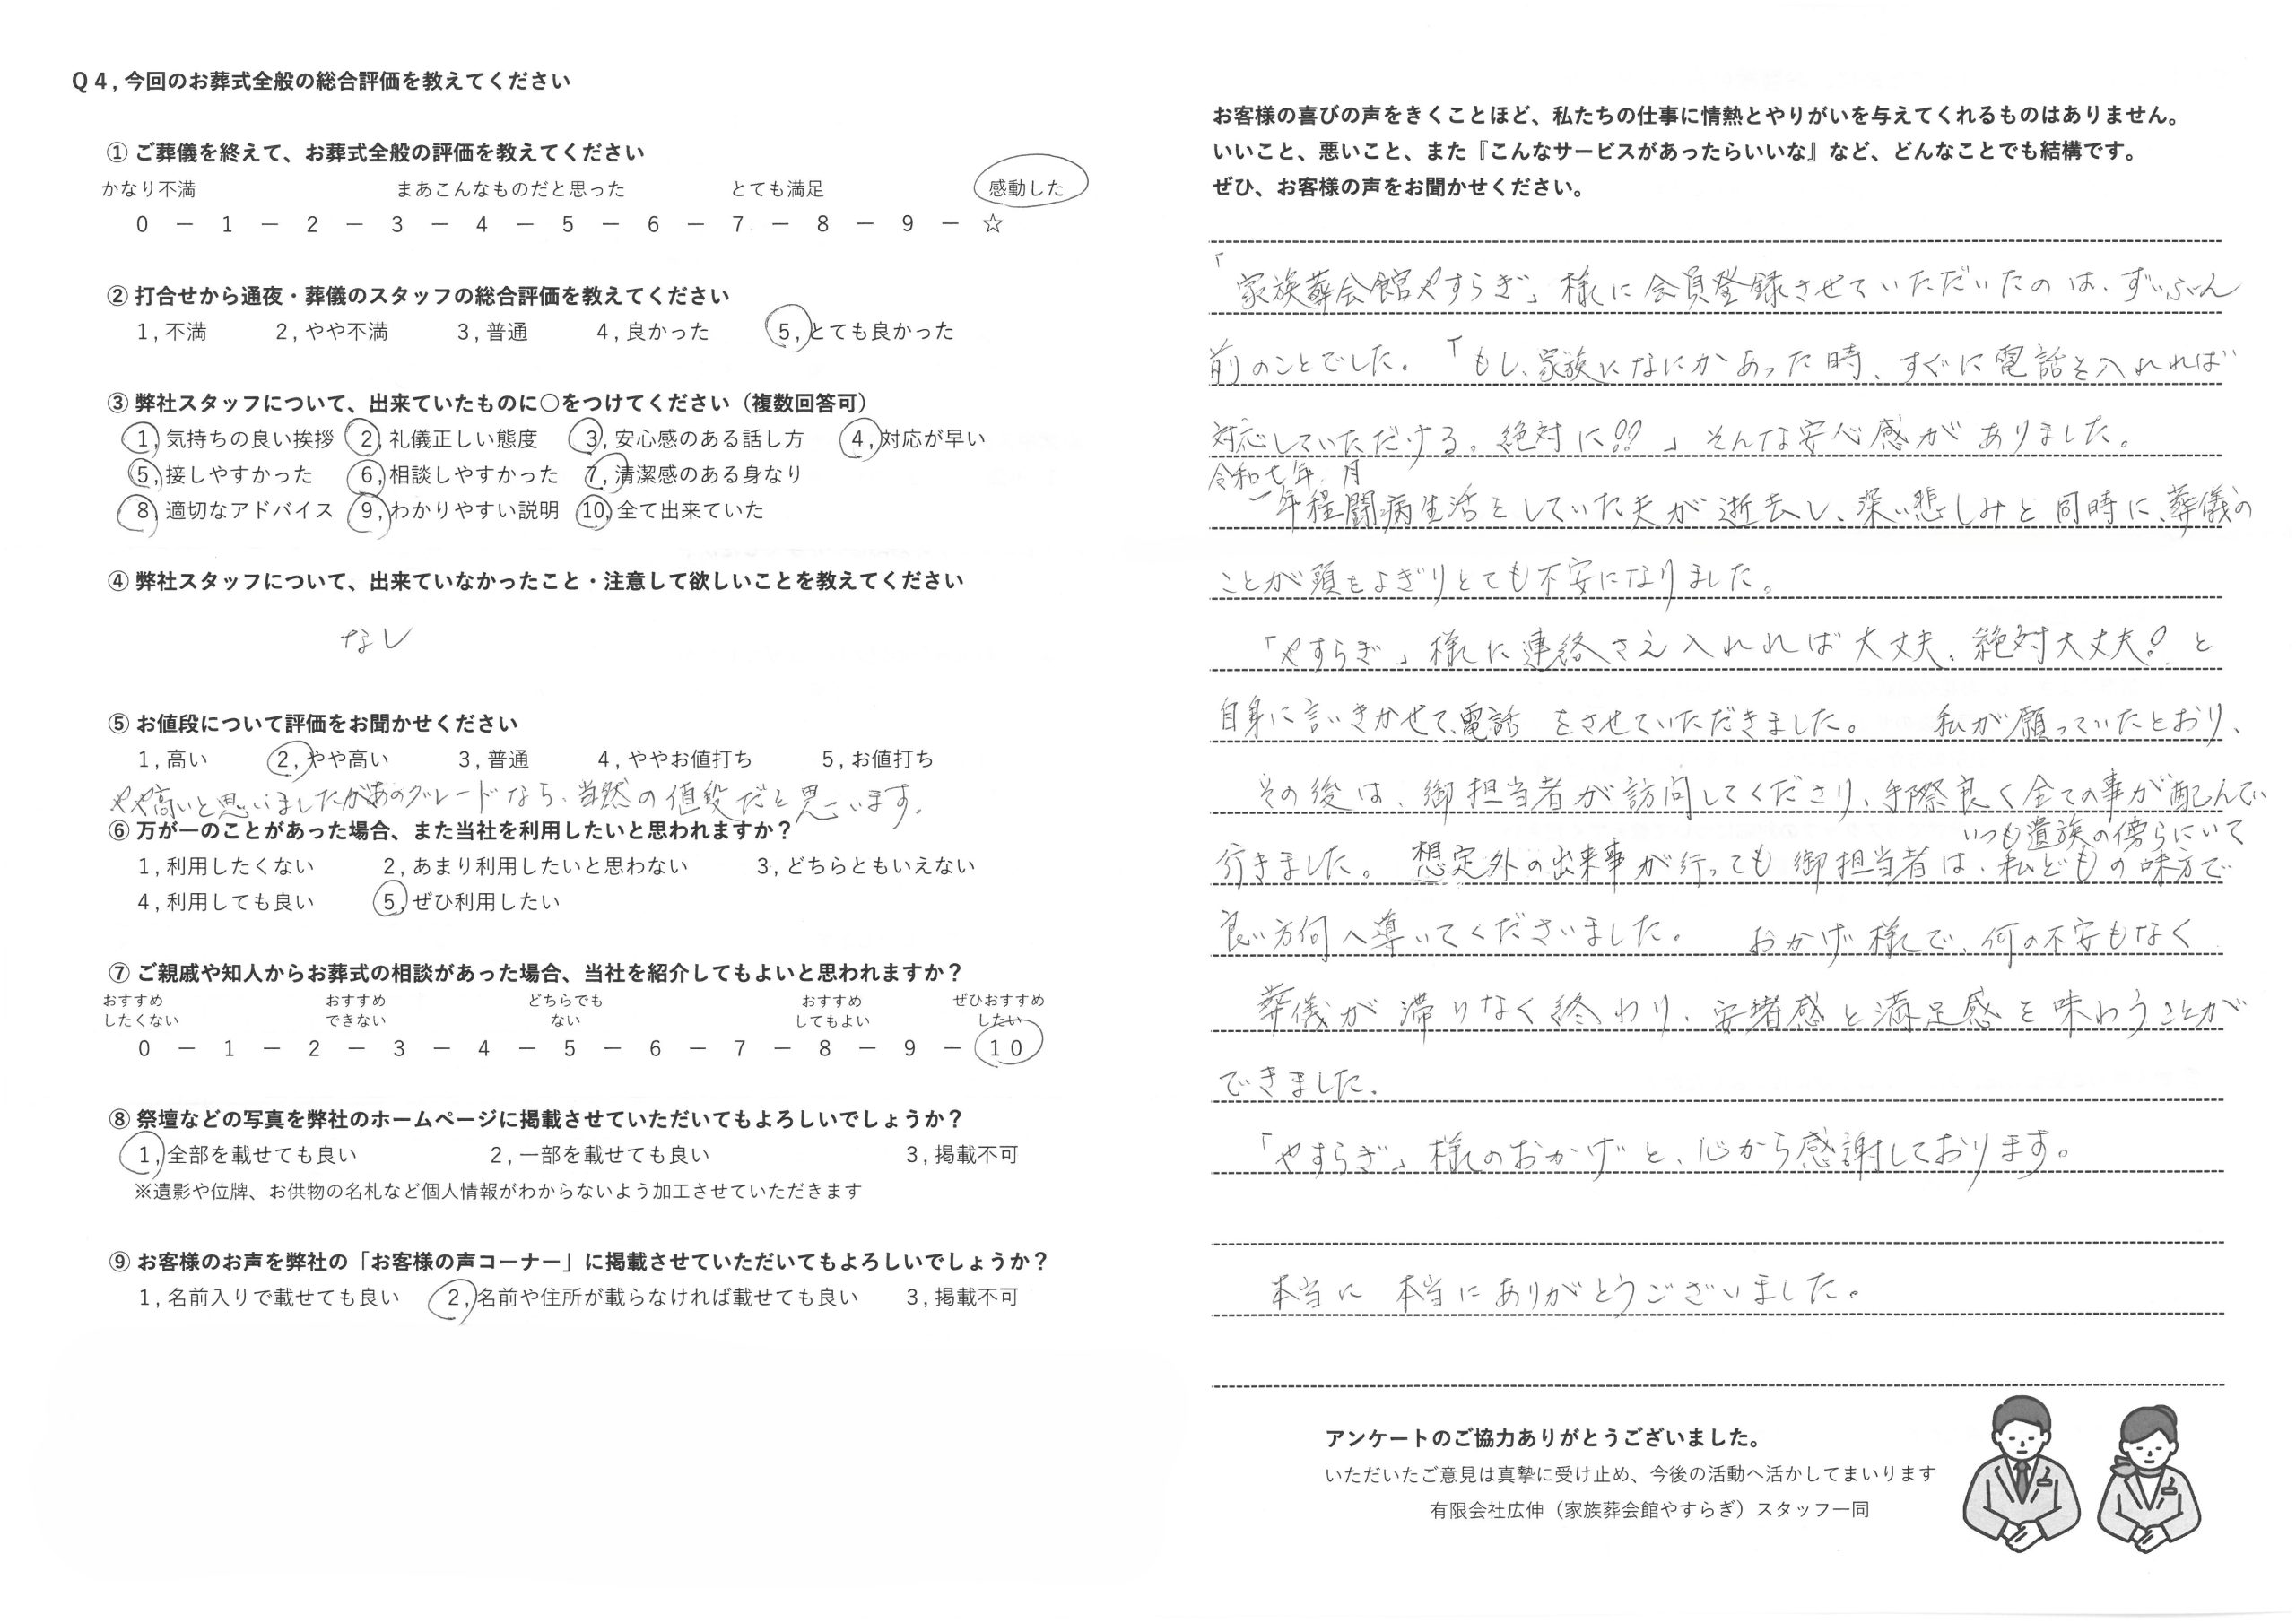 Q4, 今回のお葬式全般の総合評価を教えてください
① ご葬儀を終えて、お葬式全般の評価を教えてください
かなり不満 まあこんなものだと思った とても満足 感動した
0 － 1 － 2 － 3 － 4 － 5 － 6 － 7 － 8 － 9 － ☆
② 打合せから通夜・葬儀のスタッフの総合評価を教えてください
1, 不満 2, やや不満 3, 普通 4, 良かった 5, とても良かった
③ 弊社スタッフについて、出来ていたものに○をつけてください（複数回答可）
1, 気持ちの良い挨拶 2, 礼儀正しい態度 3, 安心感のある話し方 4, 対応が早い
5, 接しやすかった 6, 相談しやすかった 7, 清潔感のある身なり
8, 適切なアドバイス 9, わかりやすい説明 10, 全て出来ていた
④ 弊社スタッフについて、出来ていなかったこと・注意して欲しいことを教えてください
なし
⑤ お値段について評価をお聞かせください
1, 高い 2, やや高い 3, 普通 4, ややお値打ち 5, お値打ち
やや高いと思いましたがあのグレードなら、当然の値段だと思います。
⑥ 万が一のことがあった場合、また当社を利用したいと思われますか？
1, 利用したくない 2, あまり利用したいと思わない 3, どちらともいえない
4, 利用しても良い 5, ぜひ利用したい
⑦ ご親戚や知人からお葬式の相談があった場合、当社を紹介してもよいと思われますか？
おすすめ おすすめ どちらでも おすすめ ぜひおすすめ
したくない できない ない してもよい したい
0 － 1 － 2 － 3 － 4 － 5 － 6 － 7 － 8 － 9 － 10
⑧ 祭壇などの写真を弊社のホームページに掲載させていただいてもよろしいでしょうか？
1, 全部を載せても良い 2, 一部を載せても良い 3, 掲載不可
※遺影や位牌、お供物の名札など個人情報がわからないよう加工させていただきます
⑨ お客様のお声を弊社の「お客様の声コーナー」に掲載させていただいてもよろしいでしょうか？
1, 名前入りで載せても良い 2, 名前や住所が載らなければ載せても良い 3, 掲載不可
お客様の喜びの声をきくことほど、私たちの仕事に情熱とやりがいを与えてくれるものはありません。
いいこと、悪いこと、また『こんなサービスがあったらいいな』など、どんなことでも結構です。
ぜひ、お客様の声をお聞かせください。
「家族葬会館やすらぎ」様に会員登録させていただいたのは、ずいぶん
前のことでした。「もし、家族になにかあった時、すぐに電話を入れれば
対応していただける。絶対に!!」そんな安心感がありました。
令和七年 月
一年程闘病生活をしていた夫が逝去し、深い悲しみと同時に、葬儀の
ことが頭をよぎりとても不安になりました。
「やすらぎ」様に連絡さえ入れれば大丈夫、絶対大丈夫!と
自身に言いきかせて、電話をさせていただきました。 私が願っていたとおり、
その後は、御担当者が訪問してくださり、手際良く全ての事が配んでい
いつも遺族の傍らにいて
行きました。 想定外の出来事が行っても御担当者は、私どもの味方で
良い方何へ導いてくださいました。 おかげ様で、何の不安もなく
葬儀が滞りなく終わり、安堵感と満足感を味わうことが
できました。
「やすらぎ」様のおかげと、心から感謝しております。
本当に 本当にありがとうございました。
アンケートのご協力ありがとうございました。
いただいたご意見は真摯に受け止め、今後の活動へ活かしてまいります
有限会社広伸（家族葬会館やすらぎ）スタッフ一同